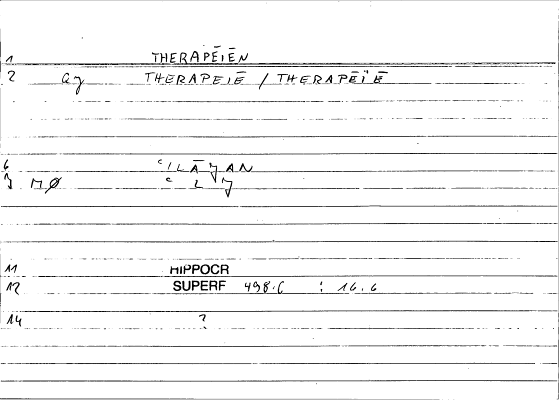 1 THERAPĒIĒN
2 ay THERAPEIĒ / THERAPĒIĒ
6 ʿILĀJAN
7 MØ ʿ L J
11 HIPPOCR
12 SUPERF 498.6 : 16.6
14 ?